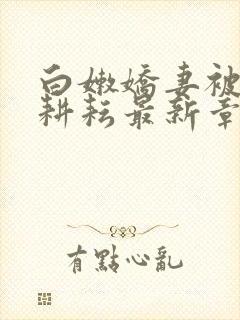 白嫩嬌妻被
耕耘最新章
有點心亂